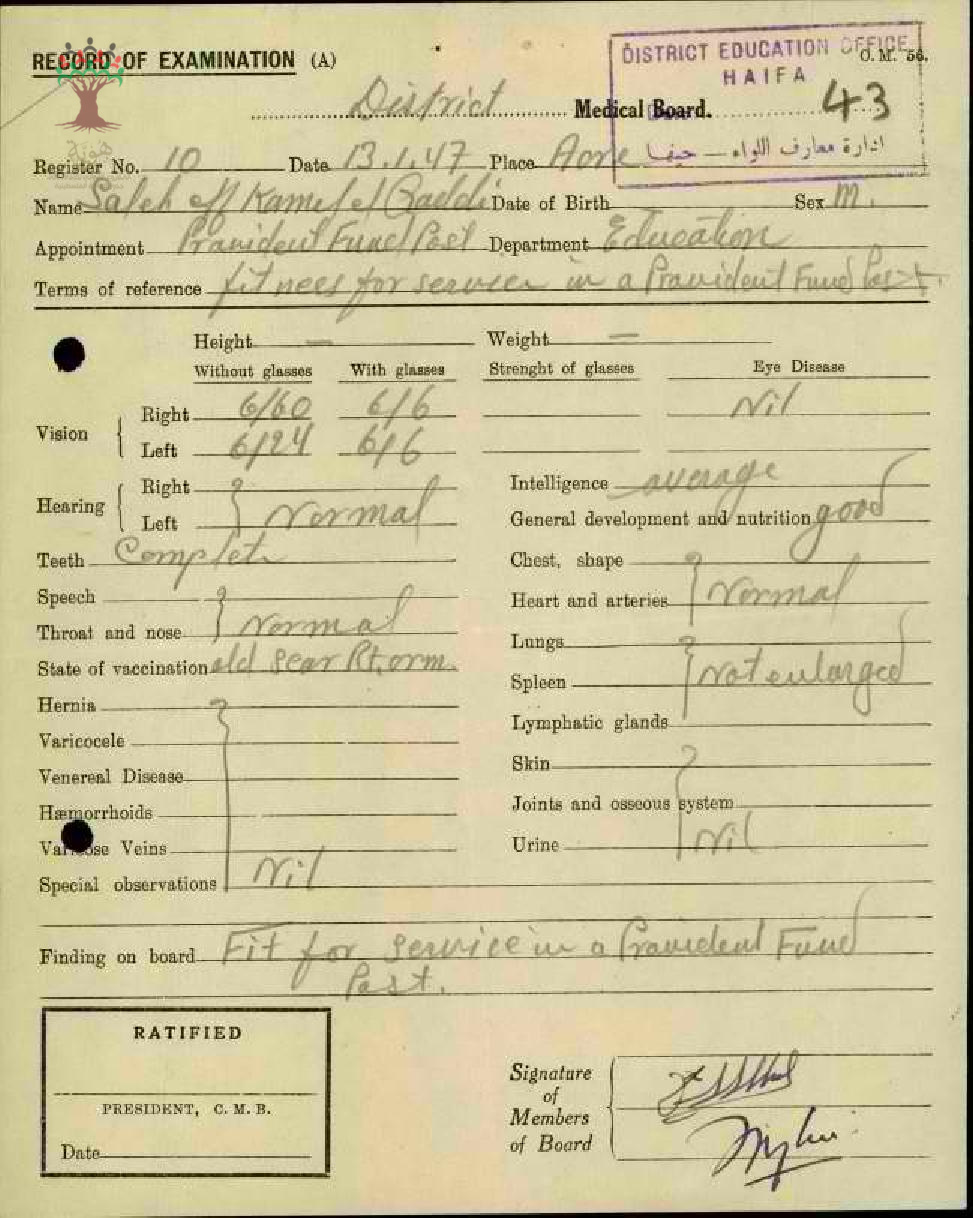 RECORD OF EXAMINATION (A)
O. M. 56.
DISTRICT EDUCATION OFFICE
HAIFA
43
ادارة معارف اللواء — حيفا
District Medical Board.
هوية
Register No. 10 Date 13.1.47 Place Acre
Name Saleh eff Kamel el Date of Birth Sex M.
Appointment Provident Fund Post Department Education
Terms of reference fitness for service in a Provident Fund Post.
Height — Weight —
Without glasses With glasses Strenght of glasses Eye Disease
Vision Right 6/60 6/6 Nil
Left 6/24 6/6
Hearing Right
Left Normal
Intelligence average
General development and nutrition good
Teeth Complete
Chest, shape
Speech
Heart and arteries Normal
Throat and nose Normal
Lungs
State of vaccination old scar Rt. arm.
Spleen Not enlarged
Hernia
Lymphatic glands
Varicocele
Skin
Venereal Disease
Joints and osseous system
Hæmorrhoids
Urine Nil
Varicose Veins
Special observations Nil
Finding on board Fit for service in a Provident Fund
Post.
RATIFIED
PRESIDENT, C. M. B.
Date
Signature
of
Members
of Board